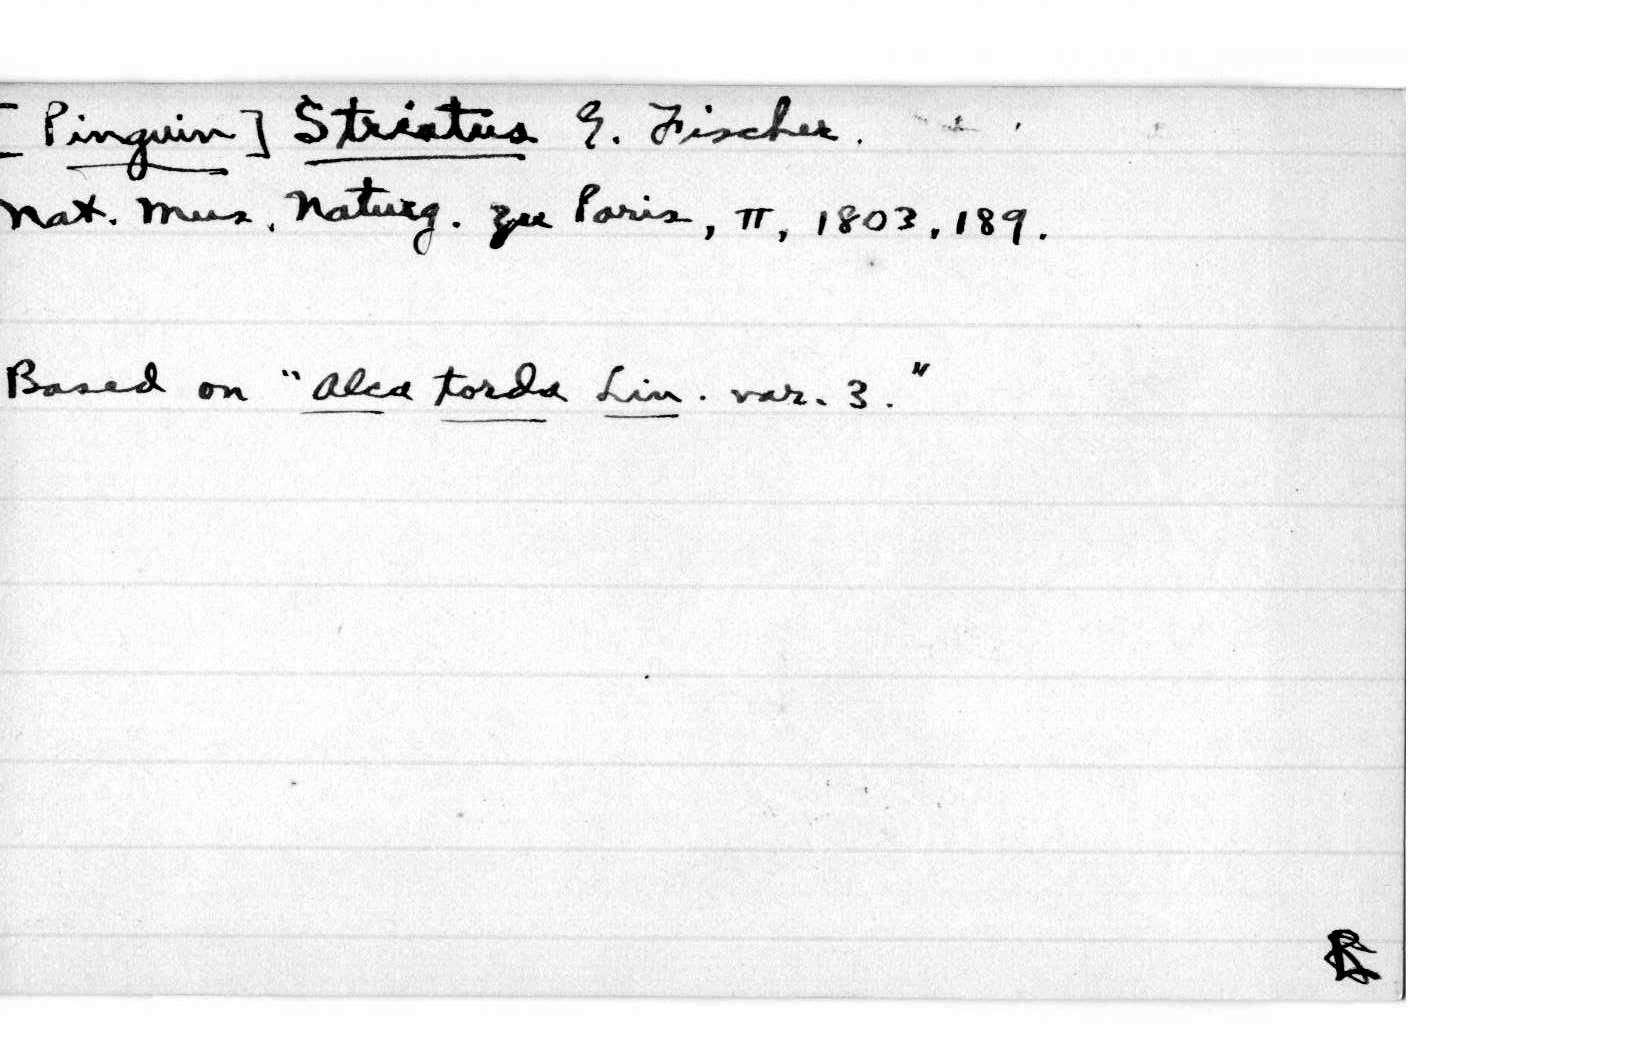 [Pinguin] Striatus G. Fischer.
Nat. Mus. Naturg. zu Paris, II, 1803, 189.
Based on "Alca torda Lin. var. 3."